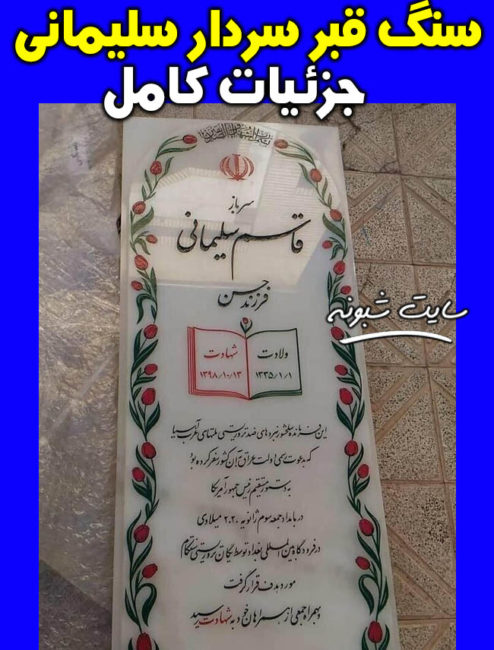 سنگ قبر سردار سلیمانی
جزئیات کامل
سرباز
قاسم سلیمانی
فرزند حسن
سایت شبونه
ولادت شهادت
۱۳۳۵/۱/۱ ۱۳۹۸/۱۰/۱۳
این فرمانده سلحشور نبردهای ضد تروریستی ملتهای غرب آسیا
که به دعوت رسمی دولت عراق به آن کشور سفر کرده بود
به دستور مستقیم رئیس جمهور آمریکا
در بامداد جمعه سوم ژانویه ۲۰۲۰ میلادی
در فرودگاه بین المللی بغداد توسط یگان تروریستی سنتکام
مورد هدف قرار گرفت
و بهمراه جمعی از همراهان خود به شهادت رسید